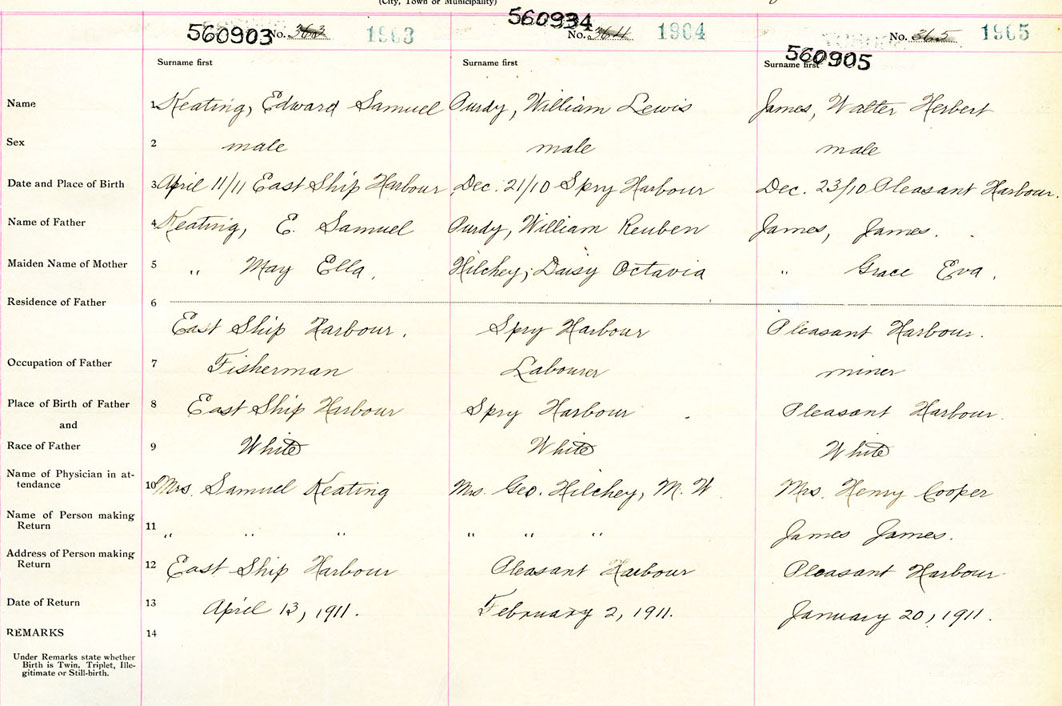 (City, Town or Municipality)
560903 No. 363 1903
560934 No. 364 1904
560905 No. 365 1905
Surname first Surname first Surname first
Name 1 Keating, Edward Samuel Purdy, William Lewis James, Walter Herbert
Sex 2 male male male
Date and Place of Birth 3 April 11/11 East Ship Harbour Dec. 21/10 Spry Harbour Dec. 23/10 Pleasant Harbour.
Name of Father 4 Keating, E. Samuel Purdy, William Reuben James, James.
Maiden Name of Mother 5 " May Ella. Hilchey, Daisy Octavia " Grace Eva.
Residence of Father 6
East Ship Harbour. Spry Harbour Pleasant Harbour.
Occupation of Father 7 Fisherman Labourer miner
Place of Birth of Father 8 East Ship Harbour Spry Harbour Pleasant Harbour.
and
Race of Father 9 White White White
Name of Physician in at-
tendance 10 Mrs. Samuel Keating Mrs. Geo. Hilchey, M. W. Mrs. Henry Cooper
Name of Person making
Return 11 " " " " " " James James.
Address of Person making
Return 12 East Ship Harbour Pleasant Harbour Pleasant Harbour
Date of Return 13 April 13, 1911. February 2, 1911. January 20, 1911.
REMARKS 14
Under Remarks state whether
Birth is Twin, Triplet, Ille-
gitimate or Still-birth.